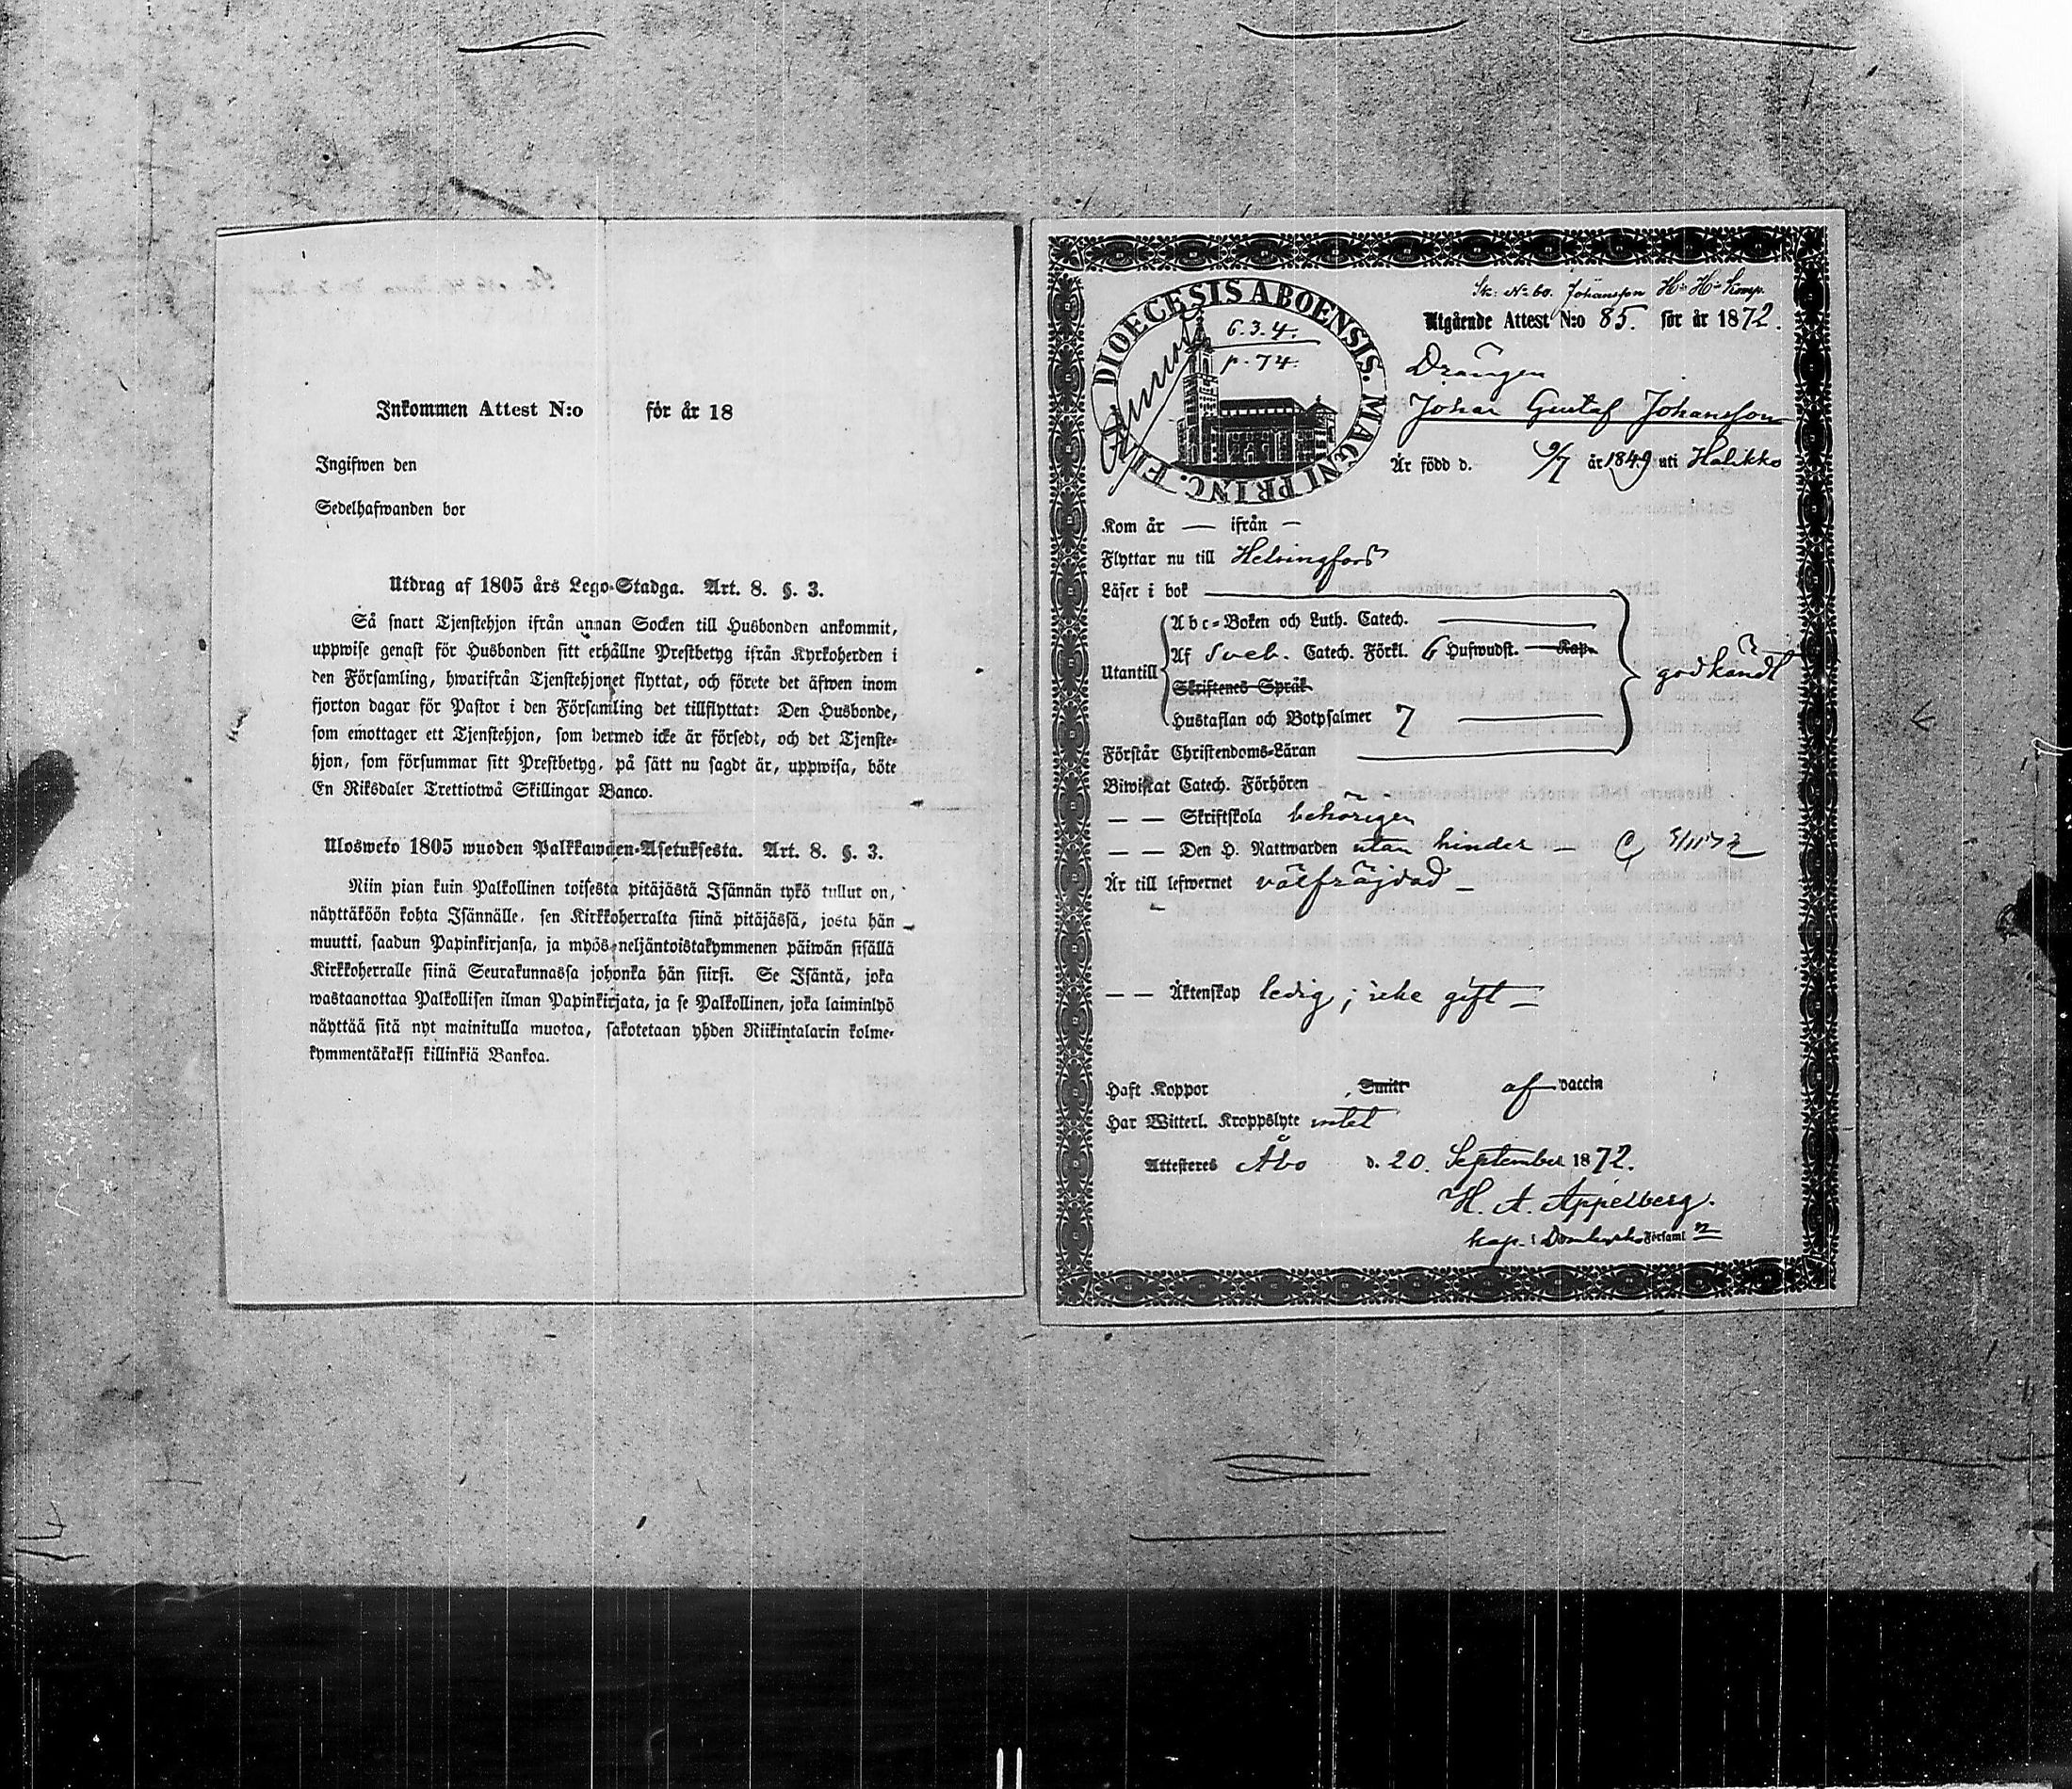 Inkommen Attest N:o för år 18
Ingifwen den
Sedelhafwanden bor
Utdrag af 1805 års Lego-Stadga. Art. 8. §. 3.
Så snart Tjenstehjon ifrån annan Socken till Husbonden ankommit,
uppwise genast för Husbonden sitt erhållne Prestbetyg ifrån Kyrkoherden i
den Församling, hwarifrån Tjenstehjonet flyttat, och förete det äfwen inom
fjorton dagar för Pastor i den Församling det tillflyttat: Den Husbonde,
som emottager ett Tjenstehjon, som dermed icke är försedt, och det Tjenste-
hjon, som försummar sitt Prestbetyg, på sätt nu sagdt är, uppwisa, böte
En Riksdaler Trettiotwå Skillingar Banco.
Ulosweto 1805 wuoden Palkkawäen-Asetuksesta. Art. 8. §. 3.
Niin pian kuin Palkollinen toisesta pitäjästä Isännän tykö tullut on,
näyttäköön kohta Isännälle, sen Kirkkoherralta siinä pitäjässä, josta hän
muutti, saadun Papinkirjansa, ja myös neljäntoistakymmenen päiwän sisällä
Kirkkoherralle siinä Seurakunnassa johonka hän siirsi. Se Isäntä, joka
wastaanottaa Palkollisen ilman Papinkirjata, ja se Palkollinen, joka laiminlyö
näyttää sitä nyt mainitulla muotoa, sakotetaan yhden Riikintalarin kolme-
kymmentäkaksi killinkiä Bankoa.
Sk: N:o 60. Johansson H:H:Komp.
DIOECESIS ABOENSIS. MAGNI PRINC. FI
6.3.4.
p. 74.
Utgående Attest N:o 85. för år 1872.
Drängen
Johan Gustaf Johansson
Är född d. 9/7 år 1849 uti Halikko
Kom år — ifrån —
Flyttar nu till Helsingfors
Läser i bok
Abc-Boken och Luth. Catech.
Utantill Af Sveb. Catech. Förkl. 6 Hufwudst. Kap.
godkändt
Skriftenes Språk
Hustaflan och Botpsalmer 7
Förstår Christendoms-Läran
Biwistat Catech. Förhören
— — Skriftskola behörigen
— — Den H. Nattwarden utan hinder —
Är till lefwernet välfräjdad —
— — Äktenskap ledig; icke gift —
Haft Koppor Smitt af vaccin
Har Witterl. Kroppslyte intet
Attesteras Åbo d. 20. September 1872.
H. A. Appelberg.
kap. i Domkyrko Församl n